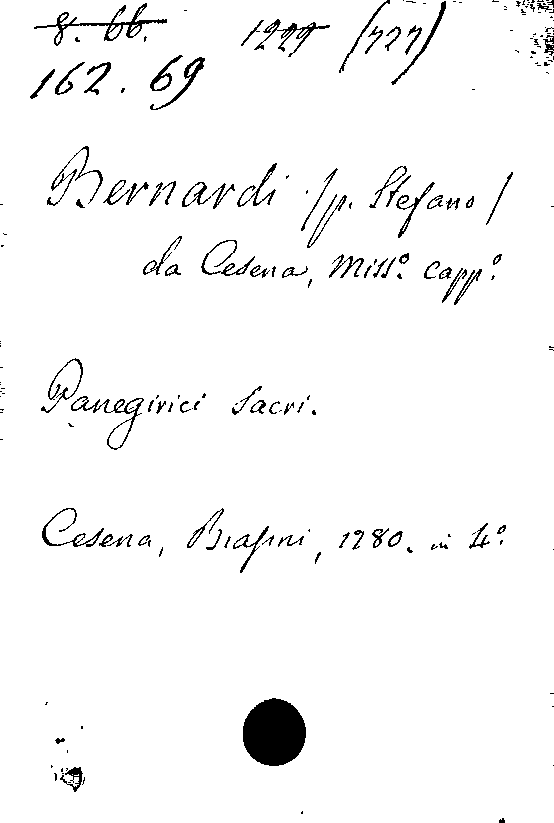 8. 66. 1229 (727)
162. 69
Bernardi /p. Stefano/
da Cesena, Miss.º capp.º
Panegirici sacri.
Cesena, Biasini, 1780. in 4.º